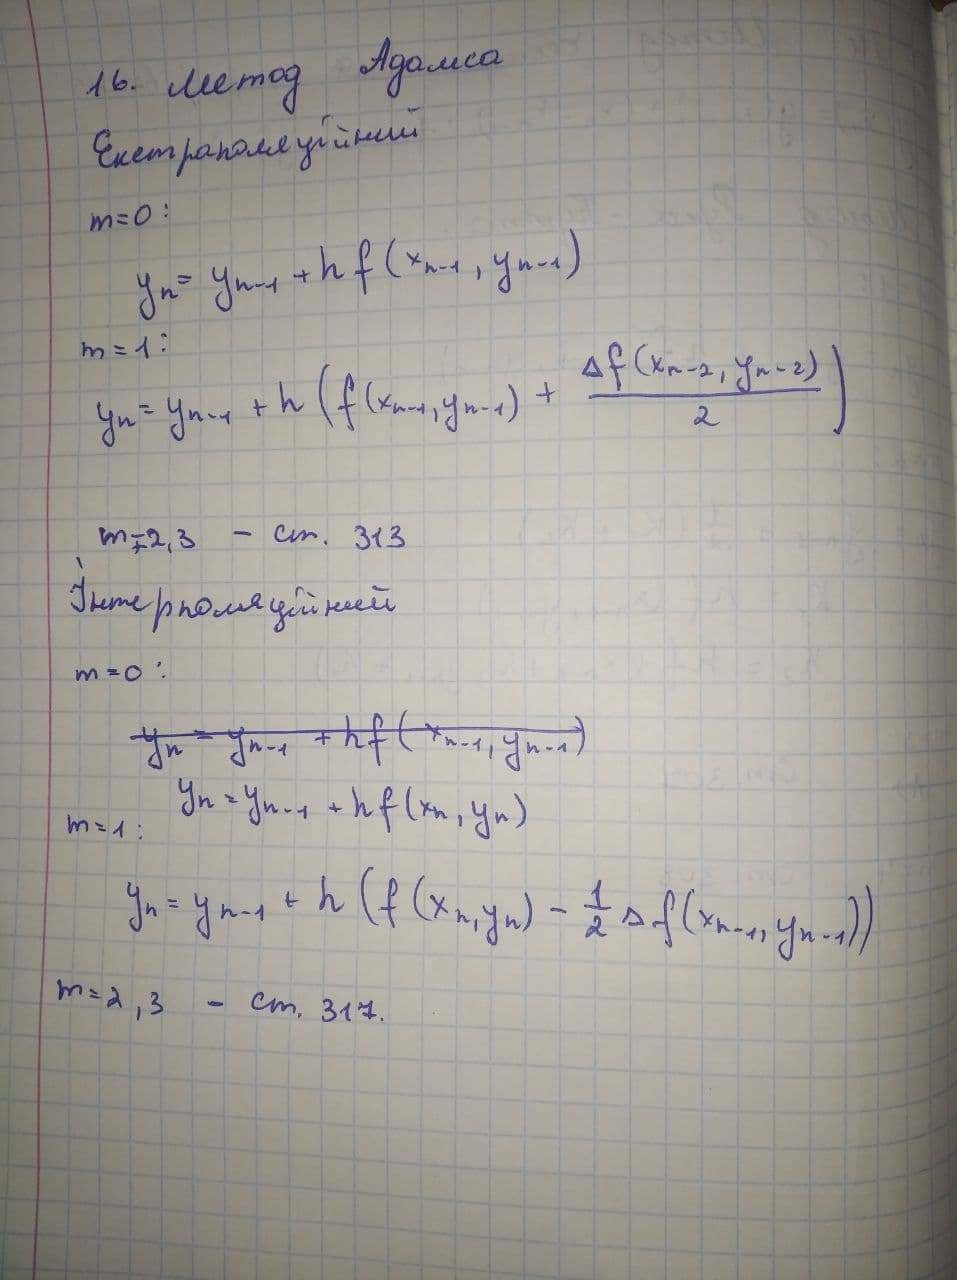 16. Метод Адамса
Екстраполяційний
m=0:
yₙ = yₙ₋₁ + h f(xₙ₋₁, yₙ₋₁)
m=1:
yₙ = yₙ₋₁ + h (f(xₙ₋₁, yₙ₋₁) + Δf(xₙ₋₂, yₙ₋₂)/2)
m=2,3 - ст. 313
Інтерполяційний
m=0:
yₙ = yₙ₋₁ + hf(xₙ₋₁, yₙ₋₁)
yₙ = yₙ₋₁ + hf(xₙ, yₙ)
m=1:
yₙ = yₙ₋₁ + h (f(xₙ, yₙ) - 1/2 Δf(xₙ₋₁, yₙ₋₁))
m=2,3 - ст. 317.